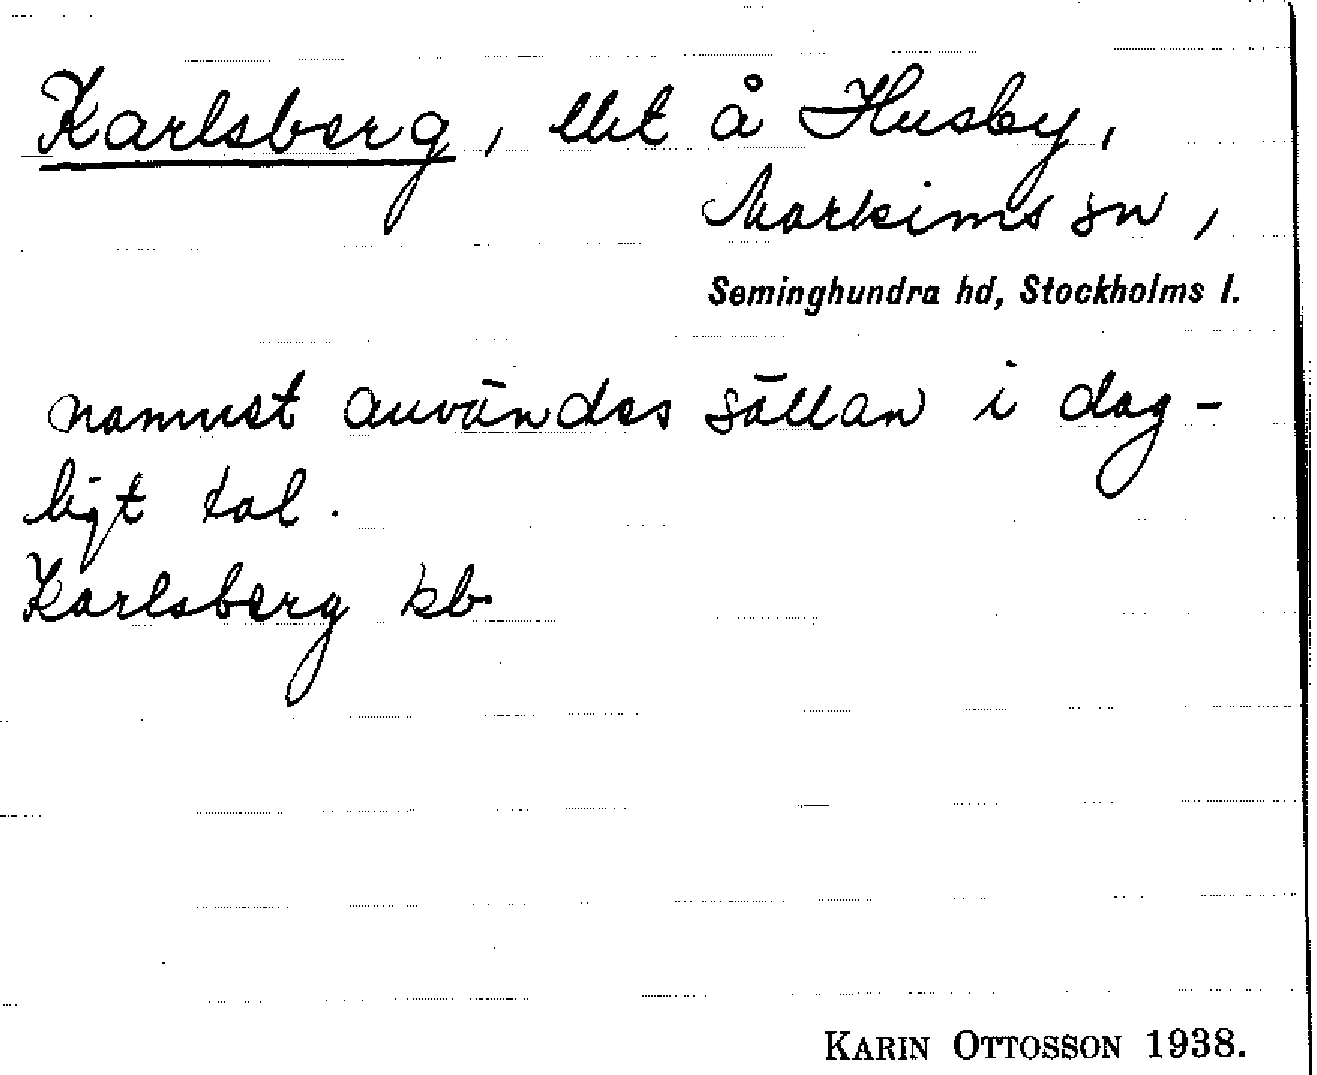 Karlsberg, llt å Husby,
Markims sn,
Seminghundra hd, Stockholms l.
namnet användes sällan i dag-
ligt tal.
Karlsberg kb
KARIN OTTOSSON 1938.